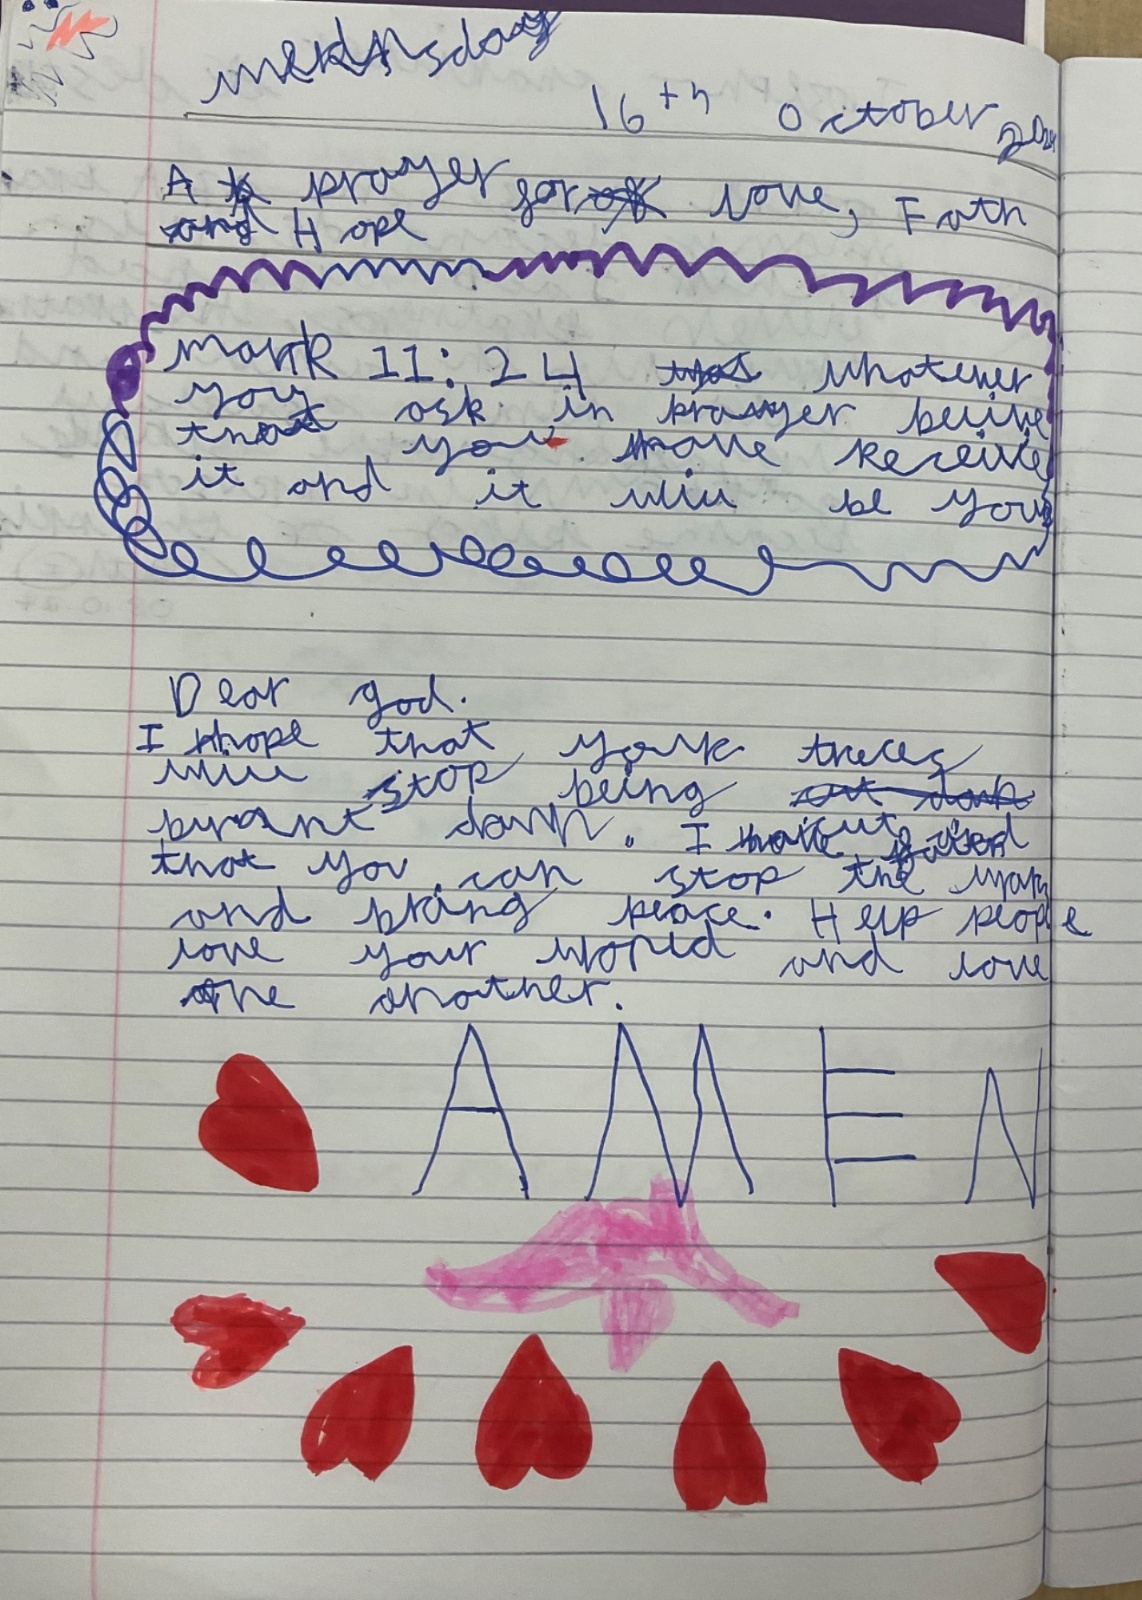 wednesday
16th October
A prayer for love, Fath
and Hope
mark 11:24 whatever
you ask in prayer belive
that you have receive
it and it will be your
Dear god.
I hope that your trees
will stop being
burant down. I
that you can stop the wars
and bring peace. Help people
love your world and love
one another.
AMEN